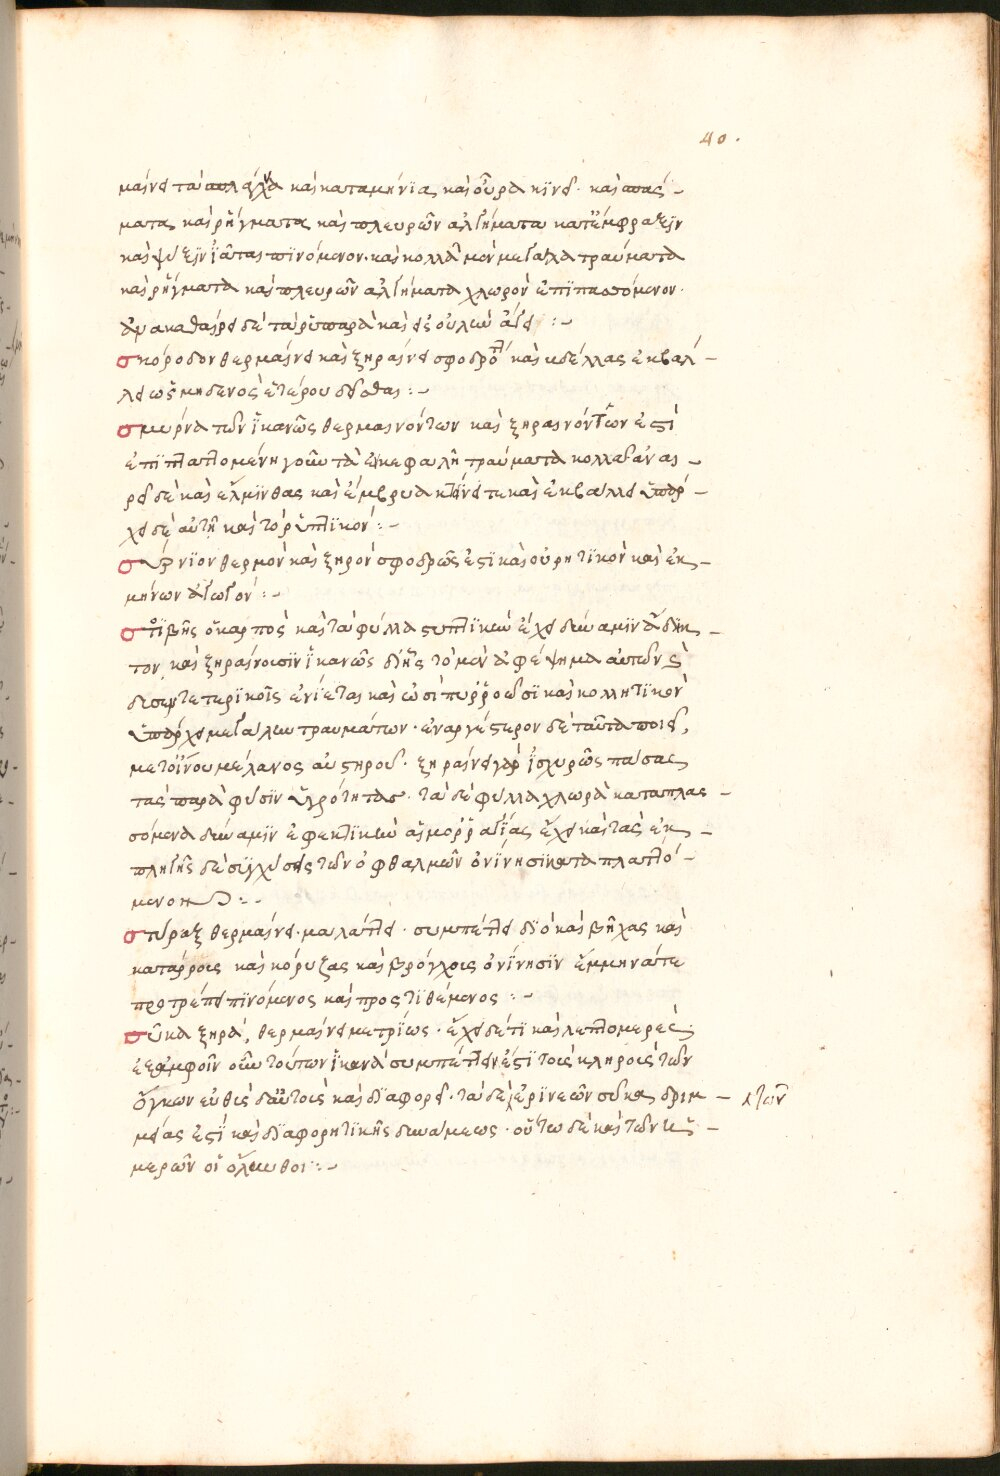 40.
μαίνει τὰ σπλάγχνα καὶ καταμήνια καὶ οὖρα κινεῖ· καὶ σπάσ–
ματα καὶ ῥήγματα καὶ πλευρῶν ἀλγήματα κατ' ἔμφραξιν
καὶ ψύξιν ἰᾶται πινόμενον· καὶ κολλᾶ μὲν μεγάλα τραύματα
καὶ ῥήγματα καὶ πλευρῶν ἀλγήματα χλωρὸν ἐπιπασσόμενον·
ἀνακαθαίρει δὲ τὰ ῥυπαρὰ καὶ εἰς οὐλὴν ἄγει :–
σκόροδον θερμαίνει καὶ ξηραίνει σφοδρῶς καὶ βδέλλας ἐκβάλ–
λει ὡς μηδενὸς ἑτέρου δεῖσθαι :–
σμύρνα τῶν ἱκανῶς θερμαινόντων καὶ ξηραινόντων ἐστὶ
ἐπιπλαττομένη γοῦν τὰ ἐν κεφαλῆ τραύματα κολλᾶ ἀναι–
ρεῖ δὲ καὶ ἕλμινθας καὶ ἔμβρυα κτείνει τε καὶ ἐκβάλλει ὑπάρ–
χει δὲ αὐτῆ καὶ τὸ ῥυπτικόν :–
σμύρνιον θερμὸν καὶ ξηρὸν σφοδρῶς ἐστι καὶ οὐρητικὸν καὶ ἐμ–
μήνων ἀγωγόν :–
στοιβῆς ὁ καρπὸς καὶ τὰ φύλλα στυπτικὴν ἔχει δύναμιν ἄδηκ–
τον καὶ ξηραίνουσιν ἱκανῶς διῆς τὸ μὲν ἀφέψημα αὐτῶν
δυσεντερικοῖς ἐνίεται καὶ ὠσὶ πυῤῥοοῦσι καὶ κολλητικὸν
ὑπάρχει μεγάλων τραυμάτων· ἐναργέστερον δὲ ταῦτα ποιεῖ,
μετ' οἴνου μέλανος αὐστηροῦ· ξηραίνει γὰρ ἰσχυρῶς πάσας
τὰς παρὰ φύσιν ὑγρότητας· τὰ δὲ φύλλα χλωρὰ καταπλασ–
σόμενα δύναμιν ἐφεκτικὴν αἱμοῤῥαγίας ἔχει καὶ τὰς ἐκ–
πληγῆς δὲ συγχύσεις τῶν ὀφθαλμῶν ὀνίνησι καταπλαττό–
μενον :–
στύραξ θερμαίνει· μαλάττει· συμπέττει διὸ καὶ βῆχας καὶ
κατάρροις καὶ κορύζας καὶ βρόγχοις ὀνίνησιν ἔμμηνά τε
προτρέπει πινόμενος καὶ προστιθέμενος :–
σῦκα ξηρὰ, θερμαίνει μετρίως· ἔχει δέ τι καὶ λεπτομερὲς
ἐξ ἀμφοῖν οὖν τούτων ἱκανὰ συμπέττειν ἐστι τοὺς σκληροὺς τῶν
ὄγκων εὐθὺς δ' αὐτοὺς καὶ διαφορεῖ· τὰ δὲ ἐρινεῶν σῦκα δριμ–
μείας ἐστὶ καὶ διαφορητικῆς δυνάμεως· οὕτω δὲ καὶ τῶν ἡ–
μερῶν οἱ ὄλυνθοι :–